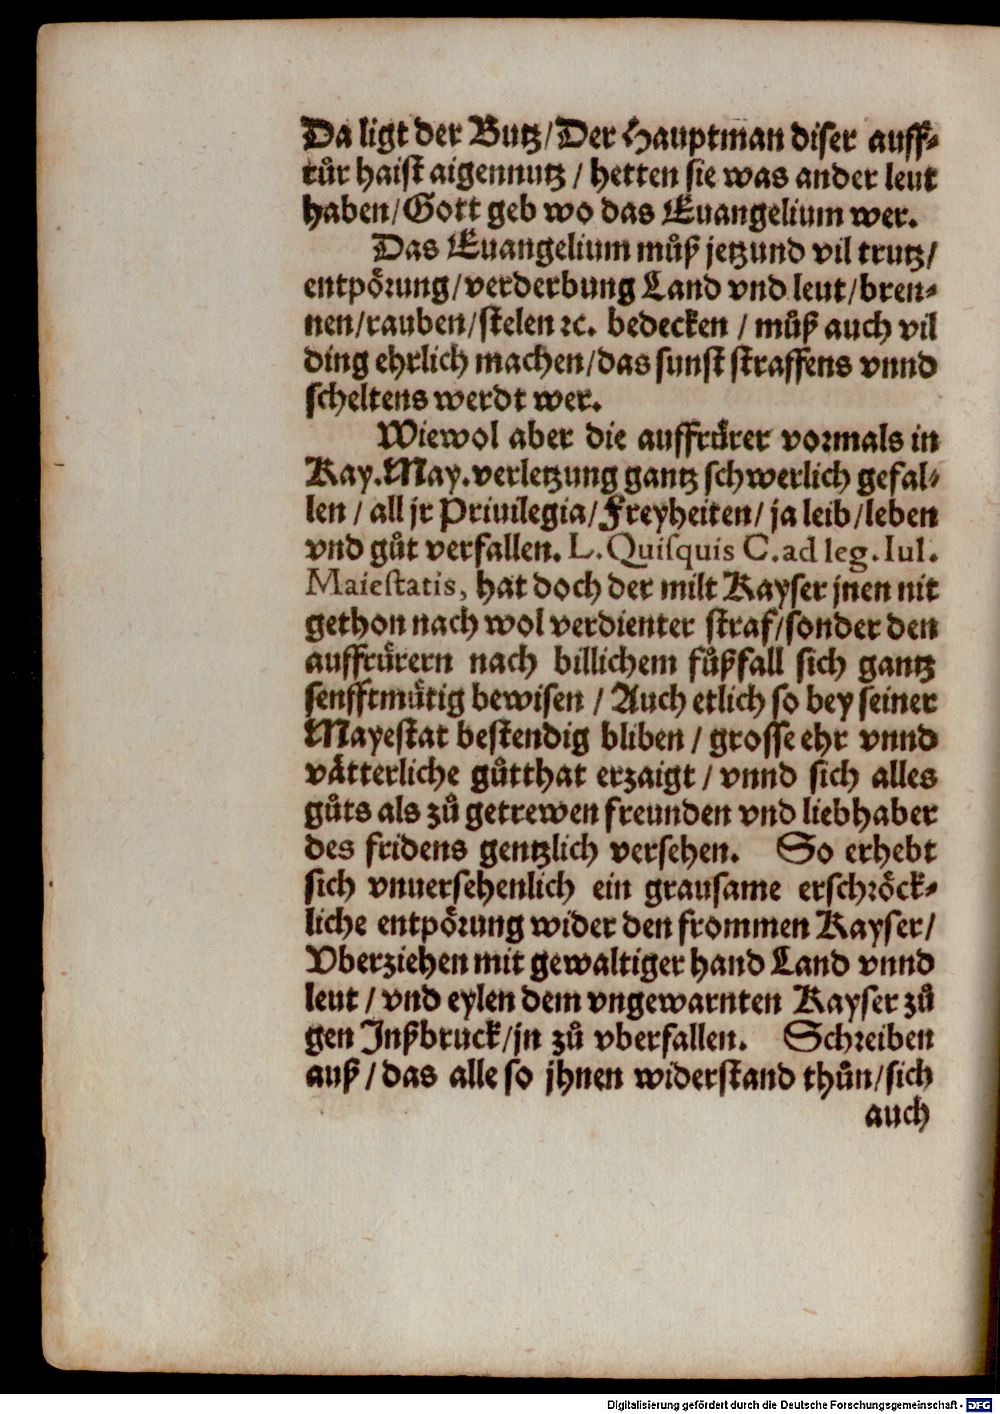 Da ligt der Butz/Der Hauptman diser auff-
růr haist aigennutz / hetten sie was ander leut
haben/Gott geb wo das Euangelium wer.
Das Euangelium můß jetzund vil trutz/
entpörung/verderbung Land vnd leut/bren-
nen/rauben/stelen ꝛc. bedecken / můß auch vil
ding ehrlich machen/das sunst straffens vnnd
scheltens werdt wer.
Wiewol aber die auffrürer vormals in
Kay.May.verletzung gantz schwerlich gefal-
len / all jr Priuilegia/Freyheiten/ ja leib/leben
vnd gůt verfallen. L.Quisquis C.ad leg.Iul.
Maiestatis, hat doch der milt Kayser jnen nit
gethon nach wol verdienter straf/sonder den
auffrürern nach billichem fůßfall sich gantz
senfftmütig bewisen / Auch etlich so bey seiner
Mayestat bestendig bliben / grosse ehr vnnd
vätterliche gůtthat erzaigt / vnnd sich alles
gůts als zů getrewen freunden vnd liebhaber
des fridens gentzlich versehen. So erhebt
sich vnuersehenlich ein grausame erschröck-
liche entpörung wider den frommen Kayser/
Vberziehen mit gewaltiger hand Land vnnd
leut / vnd eylen dem vngewarnten Kayser zů
gen Inßbruck/jn zů vberfallen. Schreiben
auß / das alle so jhnen widerstand thůn/sich
auch
Digitalisierung gefördert durch die Deutsche Forschungsgemeinschaft - DFG